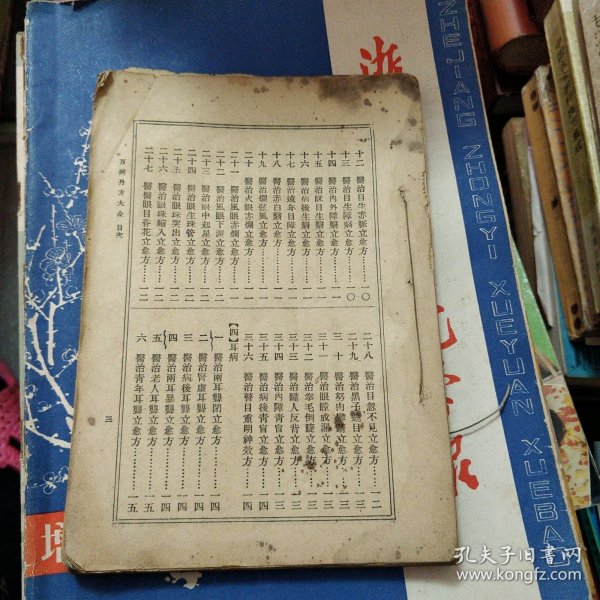 十二　醫治目生赤脈立愈方……一〇
十三　醫治目生障翳立愈方……一〇
十四　醫治內外障翳立愈方……一一
十五　醫治眯目生翳立愈方……一一
十六　醫治病後生翳立愈方……一一
十七　醫治遠年目障立愈方……一一
十八　醫治赤白翳立愈方……一一
十九　醫治爛弦風立愈方……一一
二十　醫治火眼赤爛立愈方……一一
二十一　醫治風眼赤爛立愈方……一一
二十二　醫治風眼下淚立愈方……一一
二十三　醫治眼中起星立愈方……一一
二十四　醫治眼生珠管立愈方……一一
二十五　醫治眼珠突出立愈方……一二
二十六　醫治眼珠縮入立愈方……一二
二十七　醫治眼目昏花立愈方……一二
二十八　醫治目忽不見立愈方……一二
二十九　醫治黑子遮目立愈方……一三
三十　醫治努肉立愈方……一三
三十一　醫治眼瞠成漏立愈方……一三
三十二　醫治拳毛倒睫立愈方……一三
三十三　醫治瞳人反背立愈方……一三
三十四　醫治內障青盲立愈方……一三
三十五　醫治病後青盲立愈方……一四
三十六　醫治瞽目重明神效方……一四
【四】耳病
一　醫治兩耳聾閉立愈方……一四
二　醫治腎虛耳聾立愈方……一四
三　醫治病後耳聾立愈方……一四
四　醫治兩耳暴聾立愈方……一四
五　醫治老人耳聾立愈方……一五
六　醫治青年耳聾立愈方……一五
百病丹方大全　目次
三
浙
ZHEJIANG ZHONGYI XUEYUAN XUEBAO
增
孔夫子旧书网
www.kongfz.com